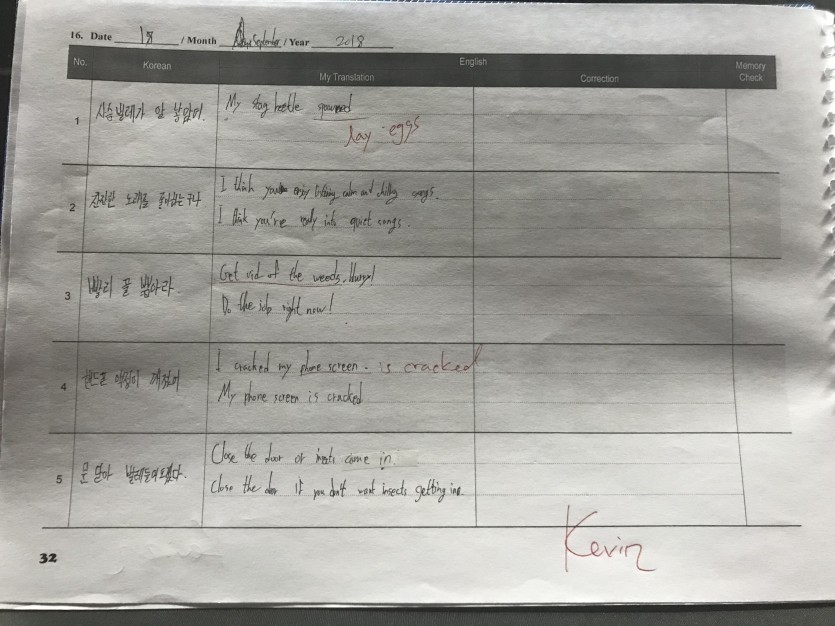 16. Date 18 / Month September / Year 2018
No. Korean English Memory Check
My Translation Correction
1 사슴벌레가 알 낳았어. My stag beetle spawned
lay eggs
2 잔잔한 노래를 좋아하는구나 I think you enjoy listening calm and chilling songs.
I think you're really into quiet songs.
3 빨리 풀 뽑아라. Get rid of the weeds, Hurry!
Do the job right now!
4 핸드폰 액정이 깨졌어 I cracked my phone screen. is cracked
My phone screen is cracked
5 문 닫아 벌레들어오겠다. Close the door or insects come in.
Close the door if you don't want insects getting in.
Kevin
32